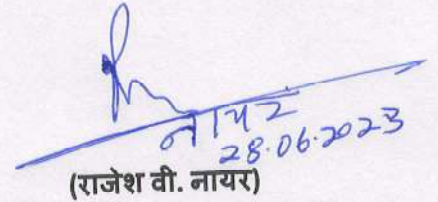 नायर
28.06.2023
(राजेश वी. नायर)